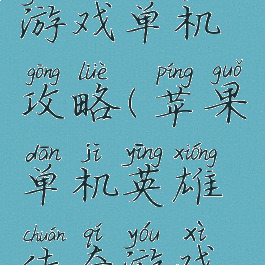 游戏单机
gōng lüè píng guǒ
攻略(苹果
dān jī yīng xióng
单机英雄
chuán qí yóu xì
传奇游戏